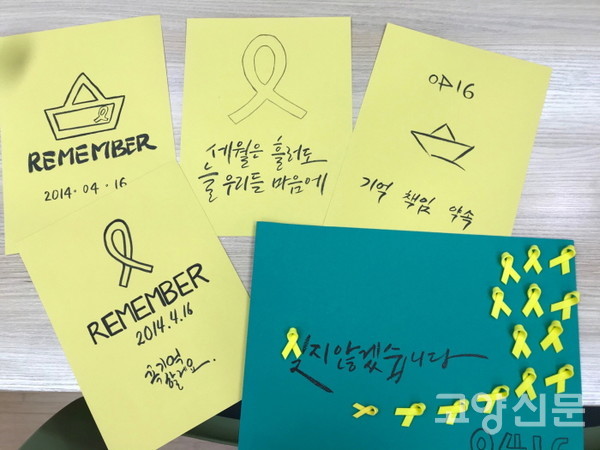 REMEMBER
2014.04.16
세월은 흘러도
늘 우리들 마음에
0416
기억 책임 약속
REMEMBER
2014.4.16
꼭 기억
할게요.
잊지 않겠습니다
0416
고양신문